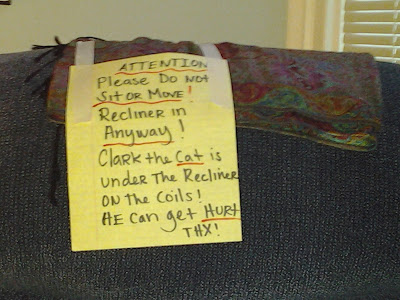 ATTENTION
Please Do Not
Sit or Move!
Recliner in
Anyway!
Clark the Cat is
under The Recliner
ON the Coils!
HE Can get Hurt
THX!